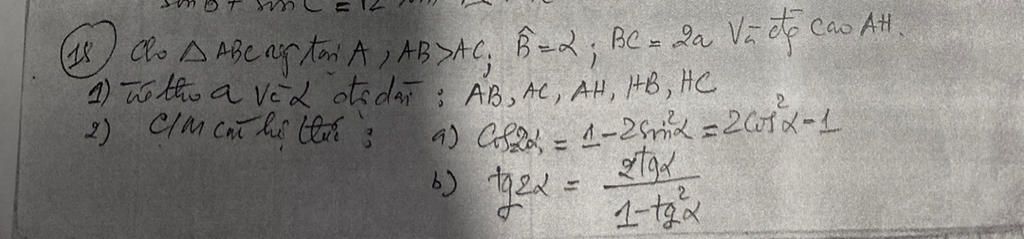 sin B + sin C = 12
(18) Cho △ ABC tại A, AB > AC; B̂ = α; BC = 2a Và độ cao AH.
1) theo a Và α độ dài : AB, AC, AH, HB, HC
2) C/M các hệ thức : a) Cos2α = 1 - 2sin²α = 2Cos²α - 1
b) tg2α = 2tgα / 1 - tg²α